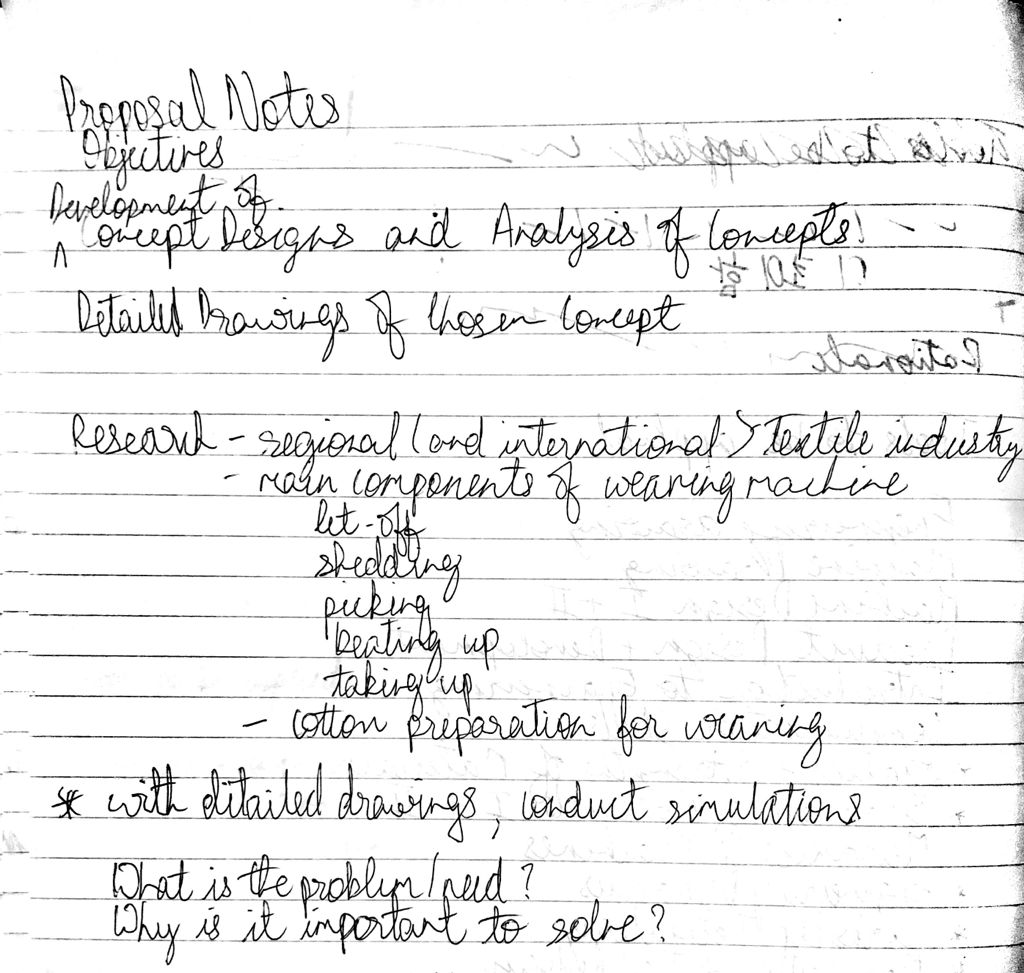 Proposal Notes
Objectives
Development of
^ Concept Designs and Analysis of Concepts
Detailed Drawings of Chosen Concept
Research - regional (and international) textile industry
- main components of weaving machine
let-off
shedding
picking
beating up
taking up
- cotton preparation for weaving
* with detailed drawings, conduct simulations
What is the problem/need?
Why is it important to solve?